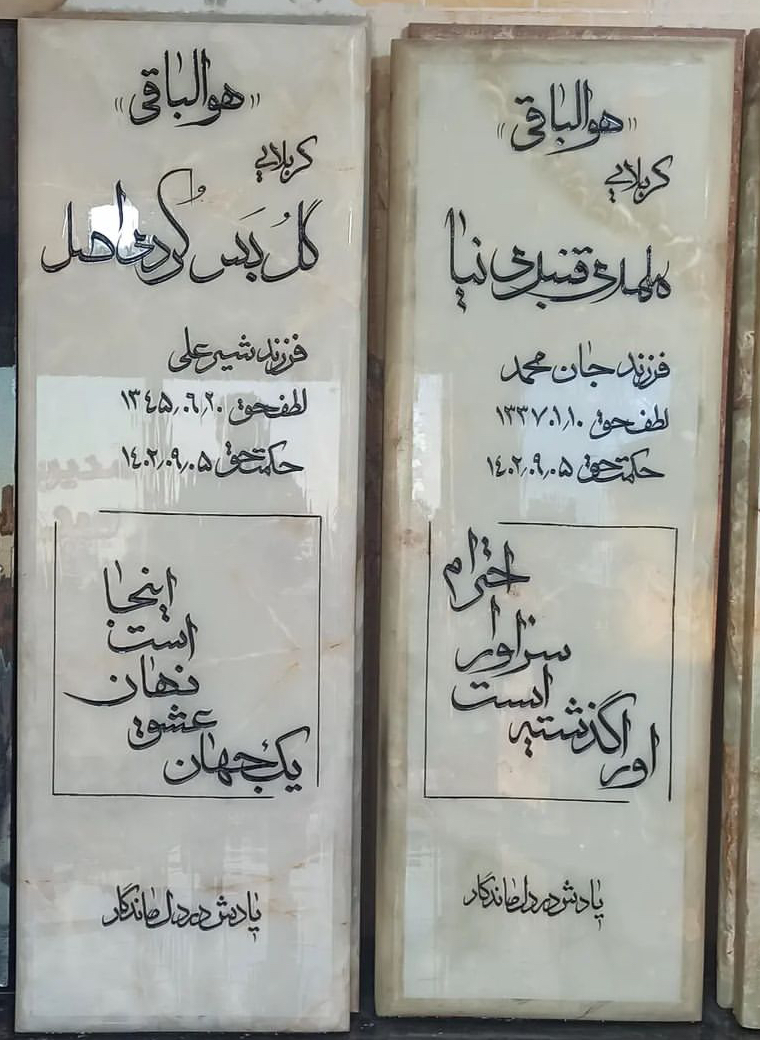 «هوالباقی»
کربلایی
مهدی قنبری نیا
فرزند جان محمد
لطف حق ۱۳۳۷٫۰۱٫۱۰
حکمت حق ۱۴۰۲٫۰۹٫۰۵
او را گذشته
ایست
سزاوار
احترام
یادش در دل ماندگار
«هوالباقی»
کربلایی
گُل بَس کُردی اصل
فرزند شیرعلی
لطف حق ۱۳۴۵٫۰۶٫۲۰
حکمت حق ۱۴۰۲٫۰۹٫۰۵
یک جهان
عشق
نهان
است
اینجا
یادش در دل ماندگار